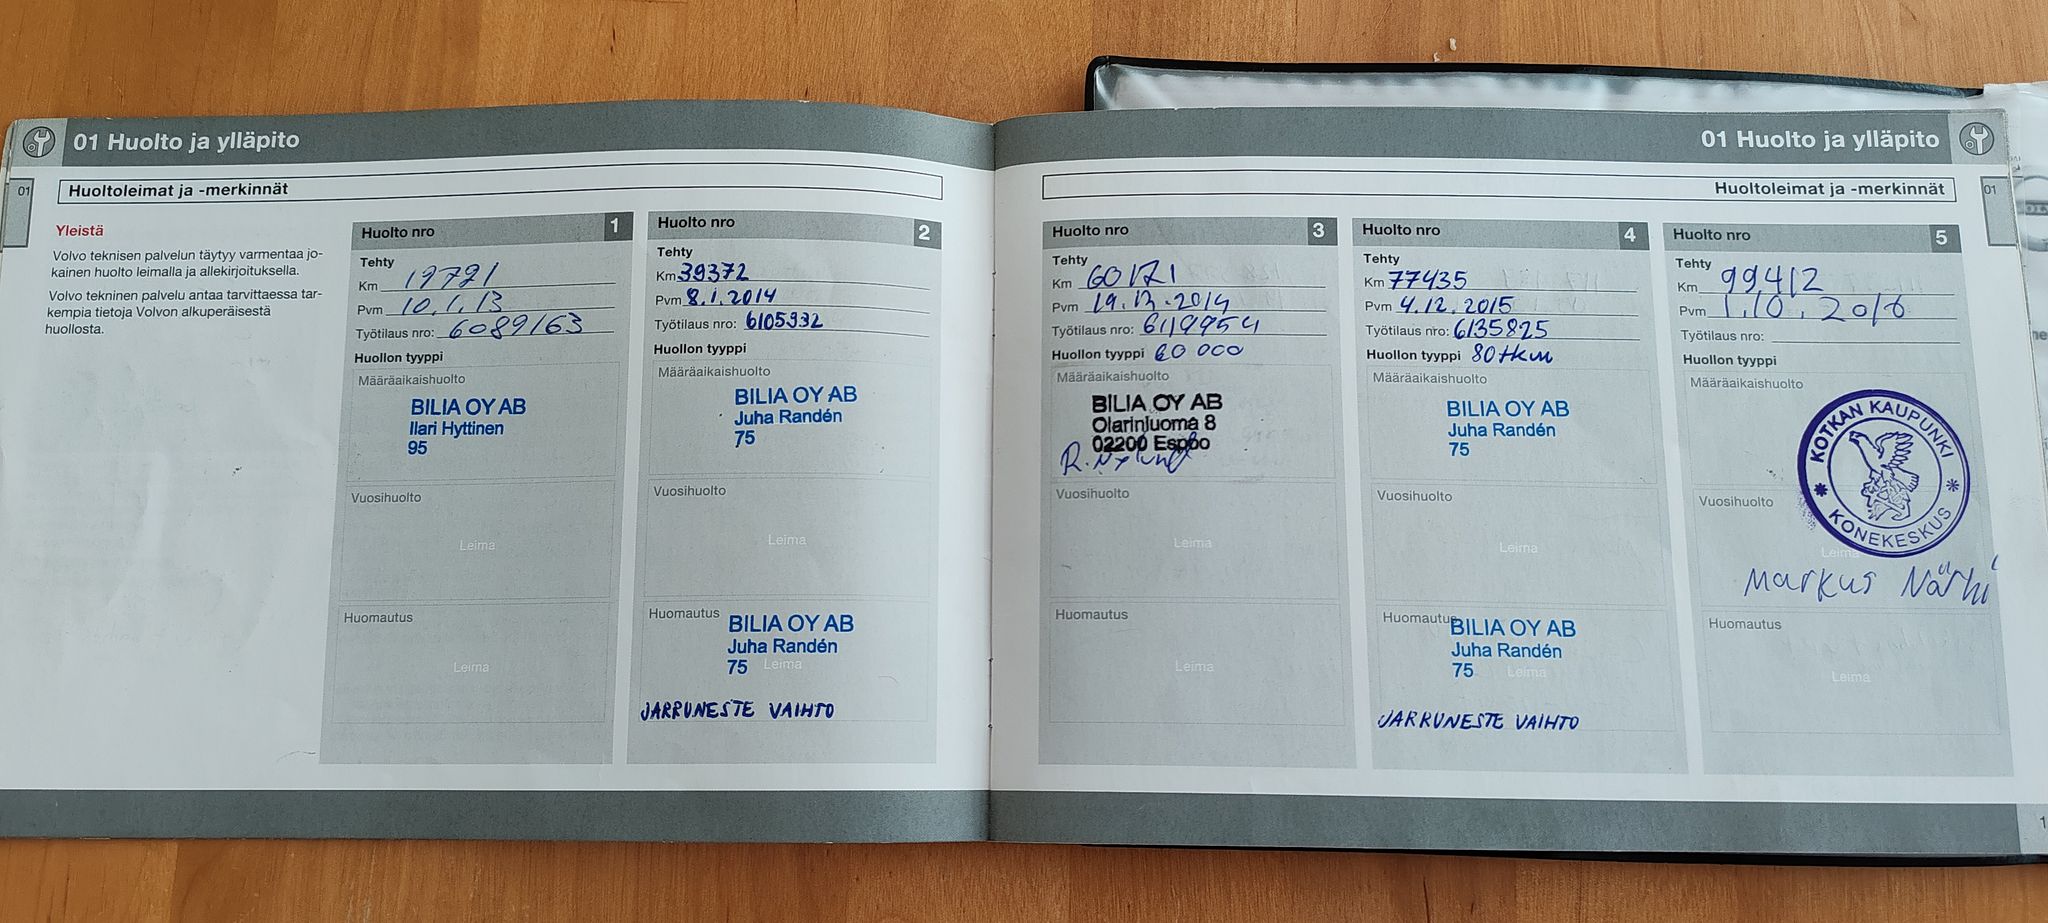 01 Huolto ja ylläpito
01
Huoltoleimat ja -merkinnät
Yleistä
Volvo teknisen palvelun täytyy varmentaa jo-
kainen huolto leimalla ja allekirjoituksella.
Volvo tekninen palvelu antaa tarvittaessa tar-
kempia tietoja Volvon alkuperäisestä
huollosta.
Huolto nro 1
Tehty
Km
Pvm 10.1.13
Työtilaus nro: 6089163
Huollon tyyppi
Määräaikaishuolto
BILIA OY AB
Ilari Hyttinen
95
Vuosihuolto
Leima
Huomautus
Leima
Huolto nro 2
Tehty
Km 39372
Pvm 8.1.2014
Työtilaus nro: 6105932
Huollon tyyppi
Määräaikaishuolto
BILIA OY AB
Juha Randén
75
Vuosihuolto
Leima
Huomautus
BILIA OY AB
Juha Randén
75 Leima
JARRUNESTE VAIHTO
01 Huolto ja ylläpito
Huoltoleimat ja -merkinnät
01
Huolto nro 3
Tehty
Km 60171
Pvm 19.12.2014
Työtilaus nro: 6119954
Huollon tyyppi 60 000
Määräaikaishuolto
BILIA OY AB
Olarinluoma 8
02200 Espoo
Vuosihuolto
Leima
Huomautus
Leima
Huolto nro 4
Tehty
Km 77435
Pvm 4.12.2015
Työtilaus nro: 6135825
Huollon tyyppi 80tkm
Määräaikaishuolto
BILIA OY AB
Juha Randén
75
Vuosihuolto
Leima
Huomautus
BILIA OY AB
Juha Randén
75 Leima
JARRUNESTE VAIHTO
Huolto nro 5
Tehty
Km 99412
Pvm 1.10.2016
Työtilaus nro:
Huollon tyyppi
Määräaikaishuolto
KOTKAN KAUPUNKI
KONEKESKUS
Vuosihuolto
Leima
Markus Närhi
Huomautus
Leima